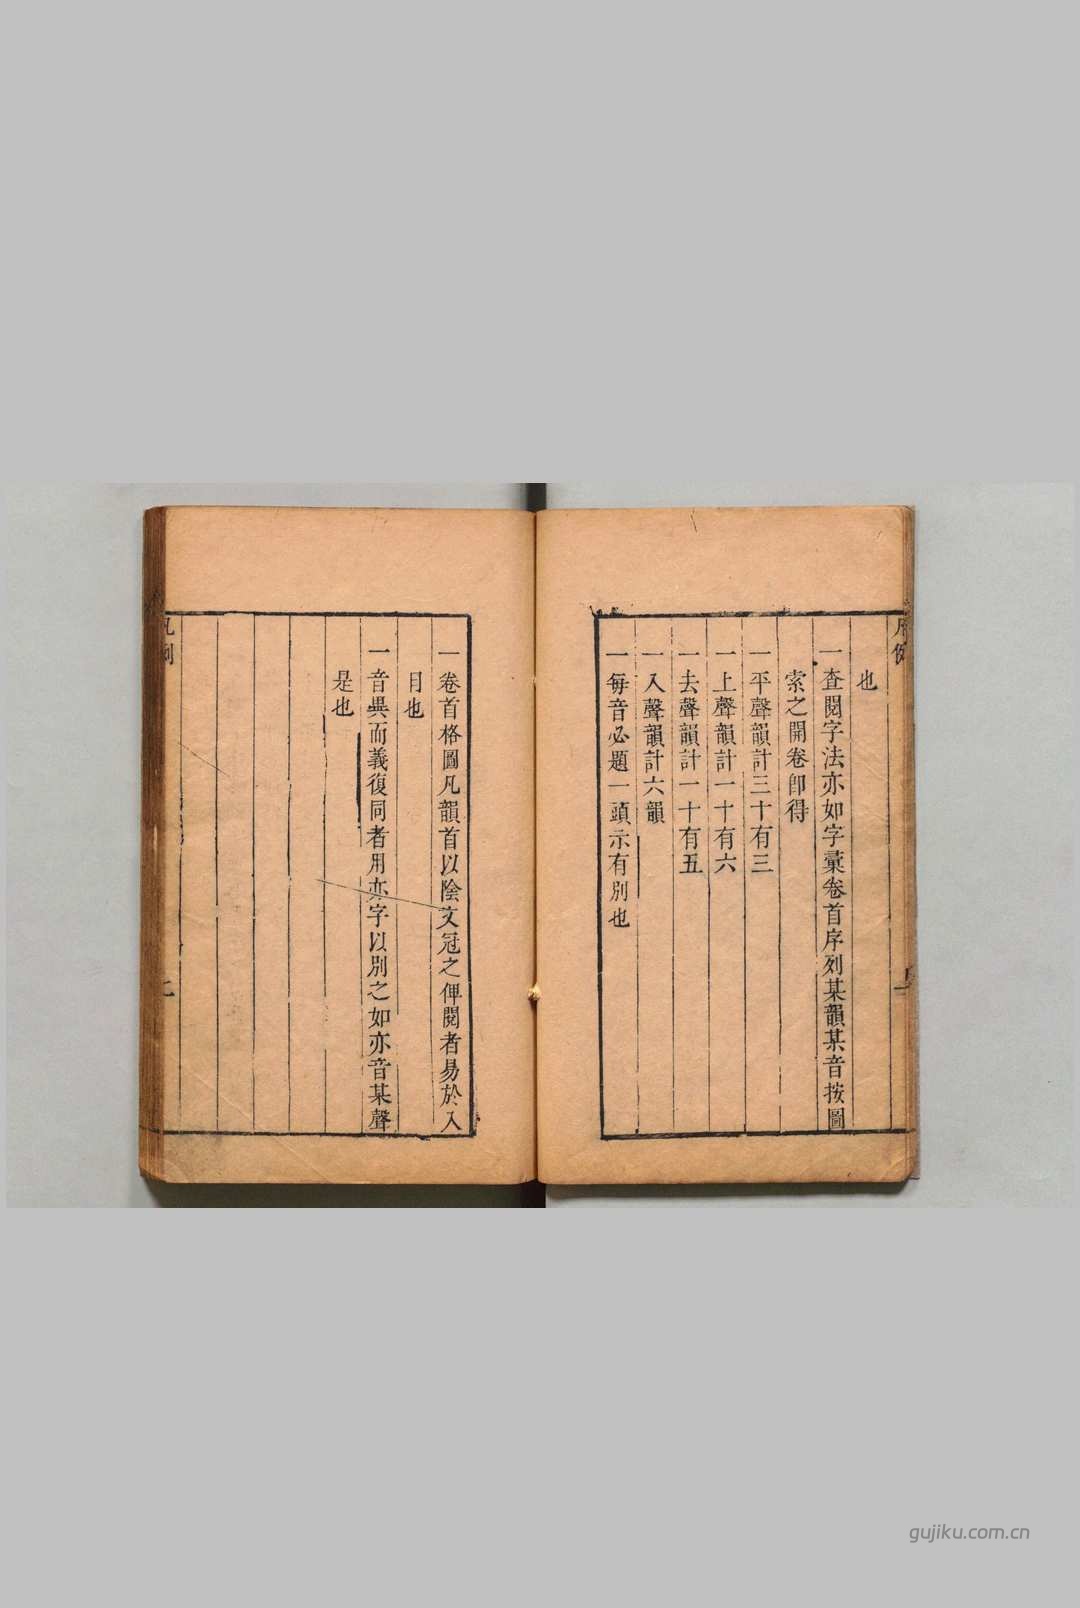 也
一查閱字法亦如字彙卷首序列某韻某音按圖
索之開卷卽得
一平聲韻計三十有三
一上聲韻計一十有六
一去聲韻計一十有五
一入聲韻計六韻
一每音必題一頭示有別也
一卷首格圖凡韻首以陰文冠之俾閱者易於入
目也
一音異而義復同者用亦字以別之如亦音某聲
是也
凡例
二
gujiku.com.cn